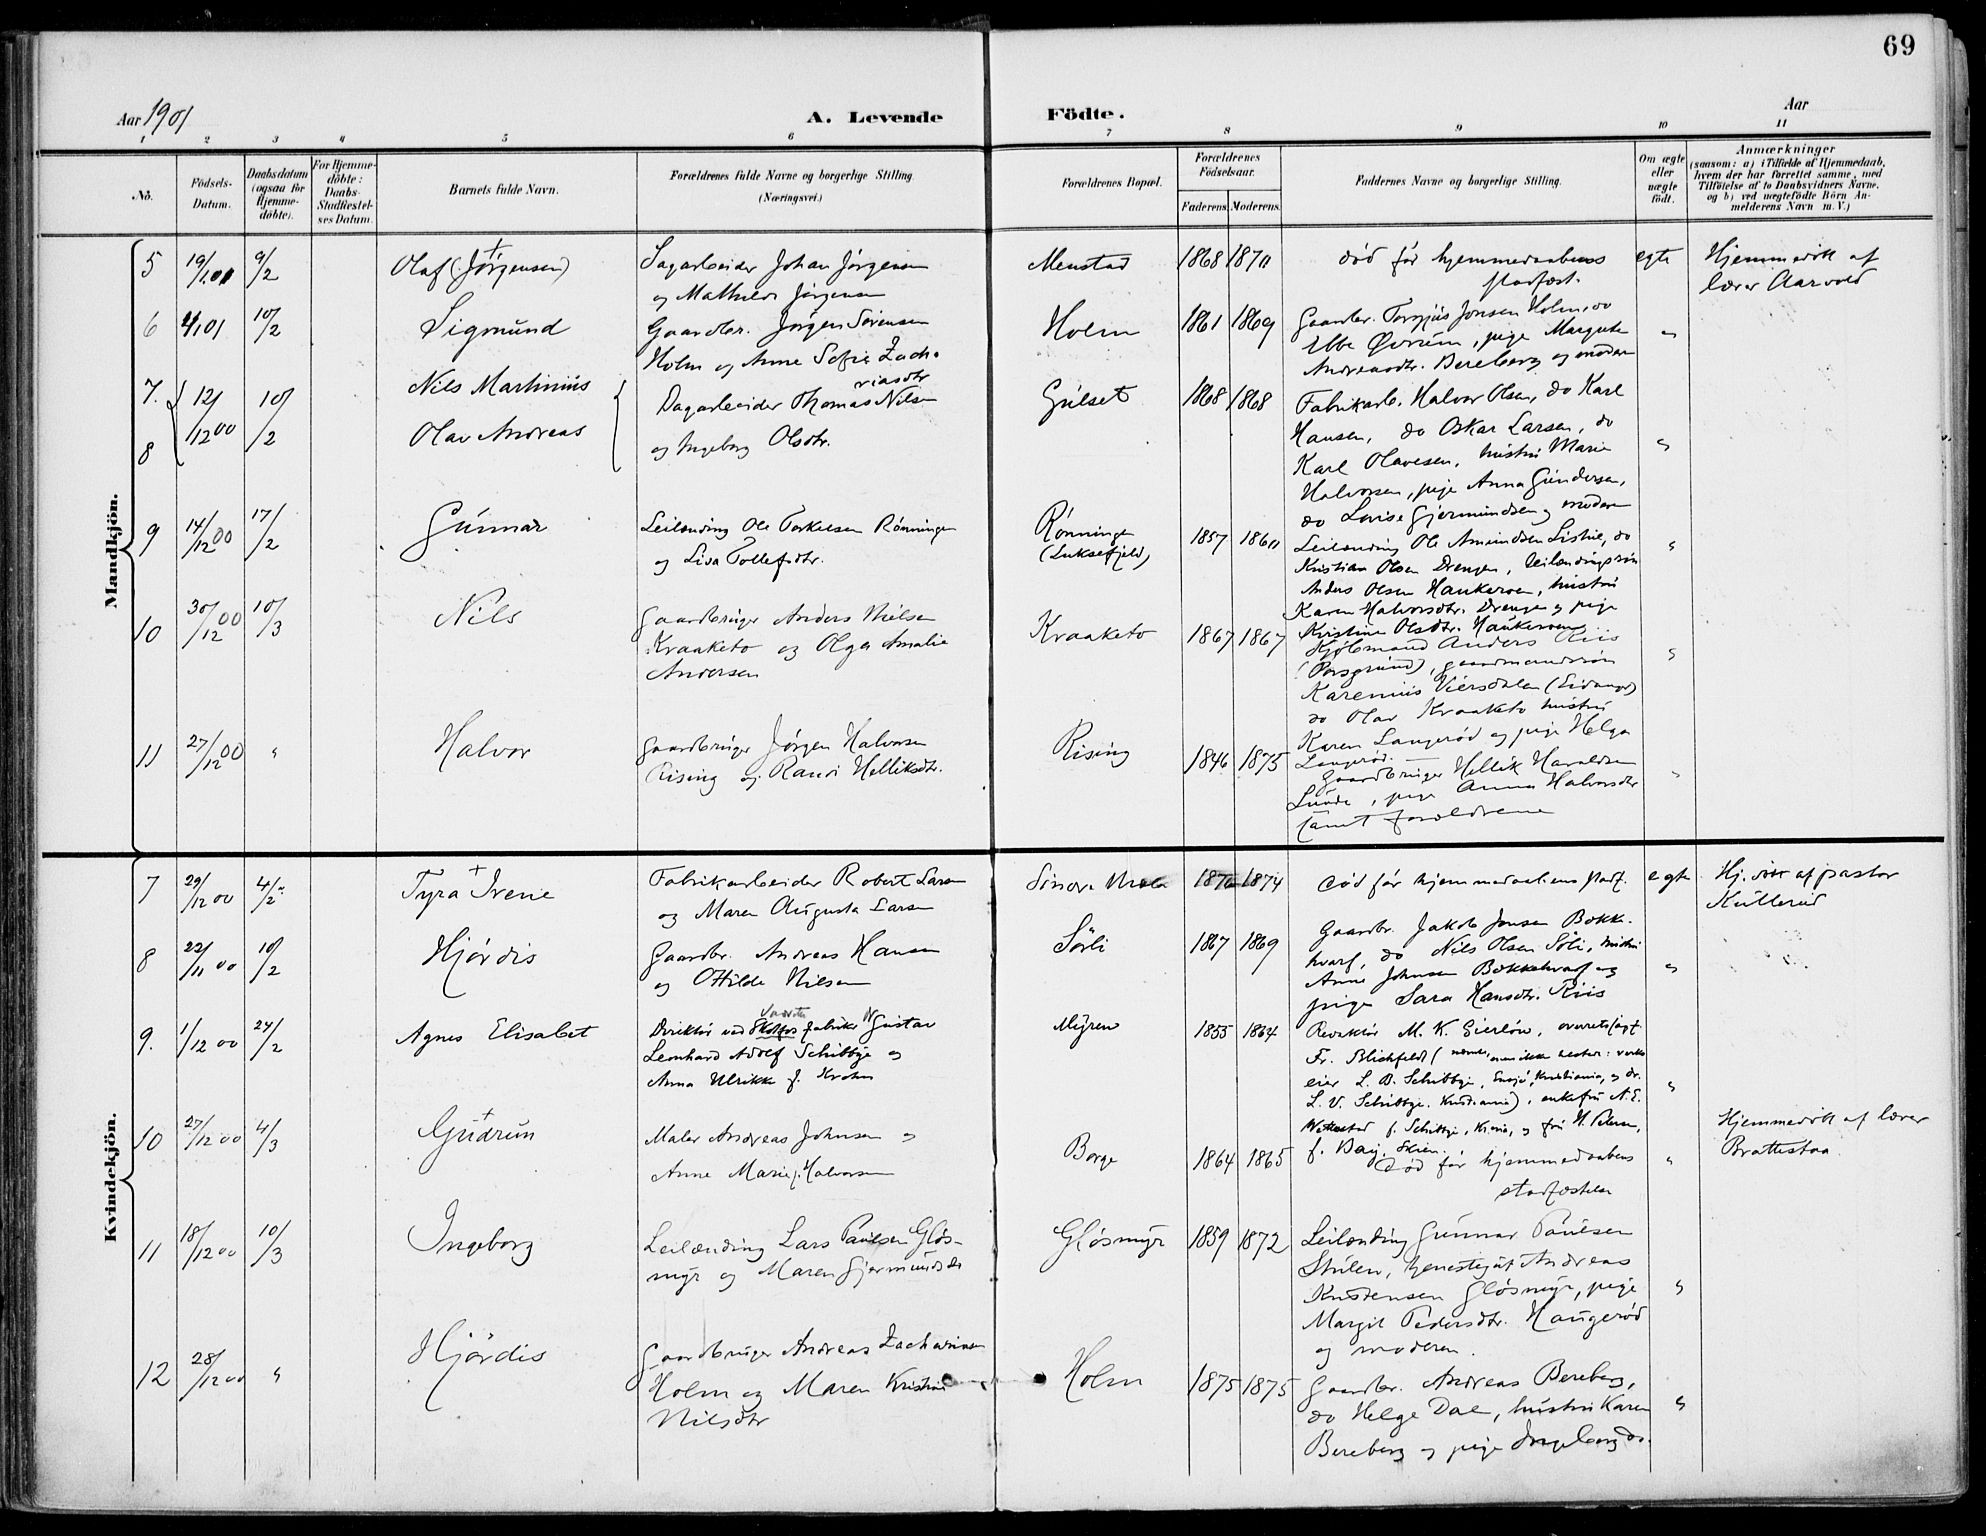 69
Aar 1901
A. Levende Födte.
Aar
1 2 3 4 5 6 7 8 9 10 11
No.
Födsels-Datum.
Daabsdatum (ogsaa for Hjemme-döbte).
For Hjemme-döbte: Daabs-Stadfæstel-ses Datum.
Barnets fulde Navn.
Forældrenes fulde Navne og borgerlige Stilling. (Næringsvei.)
Forældrenes Bopæl.
Forældrenes Födselsaar.
Faderens. Moderens.
Faddernes Navne og borgerlige Stilling.
Om ægte eller uægte födt.
Anmærkninger
(saasom: a) i Tilfælde af Hjemmedaab, hvem der har forrettet samme, med Tilföielse af to Daabsvidners Navne, og b) ved uægtefödte Börn An-melderens Navn m. V.)
Mandkjön.
5 19/1.01 9/2 Olaf (Jørgensen) +
Sagarbeider Johan Jørgensen
og Mathilde Jørgensen
Menstad 1868 1870
død før hjemmedaabens
stadfæst.
egte
Hjemmedøbt af
lærer Aarvold
6 4/1.01 10/2 Sigmund
Gaardbr. Jørgen Sørensen
Holm og Anne Sofie Zach-
riasdtr
Holm 1861 1869
Gaardbr. Torgjus Jonsen Holm, do
Ebbe Øvrum, pige Margrete
Andreasdtr. Bereberg og moderen
"
7. 12/12 00 10/2 Nils Martinius
8 Olav Andreas
Dagarbeider Thomas Nilsen
og Ingeborg Olsdtr.
Gulset 1868 1868
Fabrikarb. Halvor Olsen, do Karl
Hansen, do Oskar Larsen, do
Karl Olavesen, hustru Marie
Halvorsen, pige Anna Gundersen,
do Lovise Gjermundsen og moderen
"
9 14/12 00 17/2 Gunnar
Leilænding Ole Torkelsen Rønningen
og Lisa Tollefsdtr.
Rønningen
(Luksefjeld)
1857 1860
Leilænding Ole Amundsen Lishie, do
Kristian Olsen Drengen, leilændingsøn
Anders Olsen Haukeroen, hustru
Karen Halvorsdtr. Drengen og pige
Kristine Olsdtr. Haukeroen
"
10 30/12 00 10/3 Nils
Gaardbruger Anders Nielsen
Kraaketo og Olga Amalie
Andersen
Kraaketo 1867 1867
Kjøbmand Anders Riis
(Porsgrund), gaardmandssøn
Karenius Viersdalen (Eidanger)
do Olav Kraaketo hustru
Karen Langerød og pige Helga
Langerød.
"
11 27/12 00 " Halvor
Gaardbruger Jørgen Halvorsen
Rising og Randi Helliksdtr.
Rising 1846 1875
Gaardbruger Hellik Haraldsen
Lunde, pige Anna Halvorsdtr
samt forældrene
"
Kvindekjön.
7 29/12 00 4/2 Tyra + Irene
Fabrikarbeider Robert Larsen
og Maren Augusta Larsen
1876 1874
død før hjemmedaabens stadf.
egte
Hj.døbt af pastor
Kullerud
8 22/11 00 10/2 Hjørdis
Gaardbr. Andreas Hansen
og Othilde Nilsen
Sørli 1867 1869
Gaardbr. Jakob Jonsen Bokke-
hvarf, do Nils Olsen Søli, hustru
Anne Johnsen Bokkehvarf og
pige Sara Hansdtr. Riis
"
9. 1/12 00 24/2 Agnes Elisabet
Direktør ved Skotfos fabrik Gustav
Leonhard Adolf Schibbye og
Anna Ulrikke f. Krohn
Myren 1855 1864
Redaktør M. K. Gierløw, overretssagf.
Fr. Blichfeldt (nævnte, men ikke tilstede: værks-
eier L. B. Schibbye, Ensjø, Kristiania, og dr.
L. V. Schibbye. Kristiania), enkefru A. E.
Wetlestad f. Schibbye, Kr.ania, og fru H. Petersen,
f. Bay, Skien.
"
10 27/12 00 4/3 Gudrun +
Maler Andreas Johnsen og
Anne Marie f. Halvorsen
Borge 1864 1865
død før hjemmedaabens
stadfæstelse
"
Hjemmedøbt af lærer
Brattestaa.
11 18/12 00 10/3 Ingeborg
Leilænding Lars Paulsen Gløs-
myr og Maren Gjermundsdtr
Gløsmyr 1859 1872
Leilænding Gunnar Paulsen
Stulen, tjenestegut Andreas
Kristensen Gløsmyr, pige
Margit Pedersdtr. Haugerød
og moderen.
"
12 28/12 00 " Hjørdis
Gaardbruger Andreas Zachariasen
Holm og Maren Kristine
Nilsdtr
Holm 1875 1875
Gaardbr. Andreas Bereberg,
do Helge Dal, hustru Karen
Bereberg og pige Ingeborg do.
"